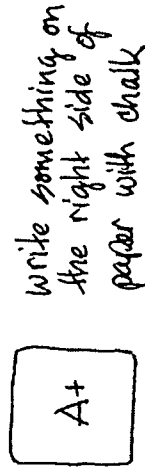 A+
write something on
the right side of
paper with chalk